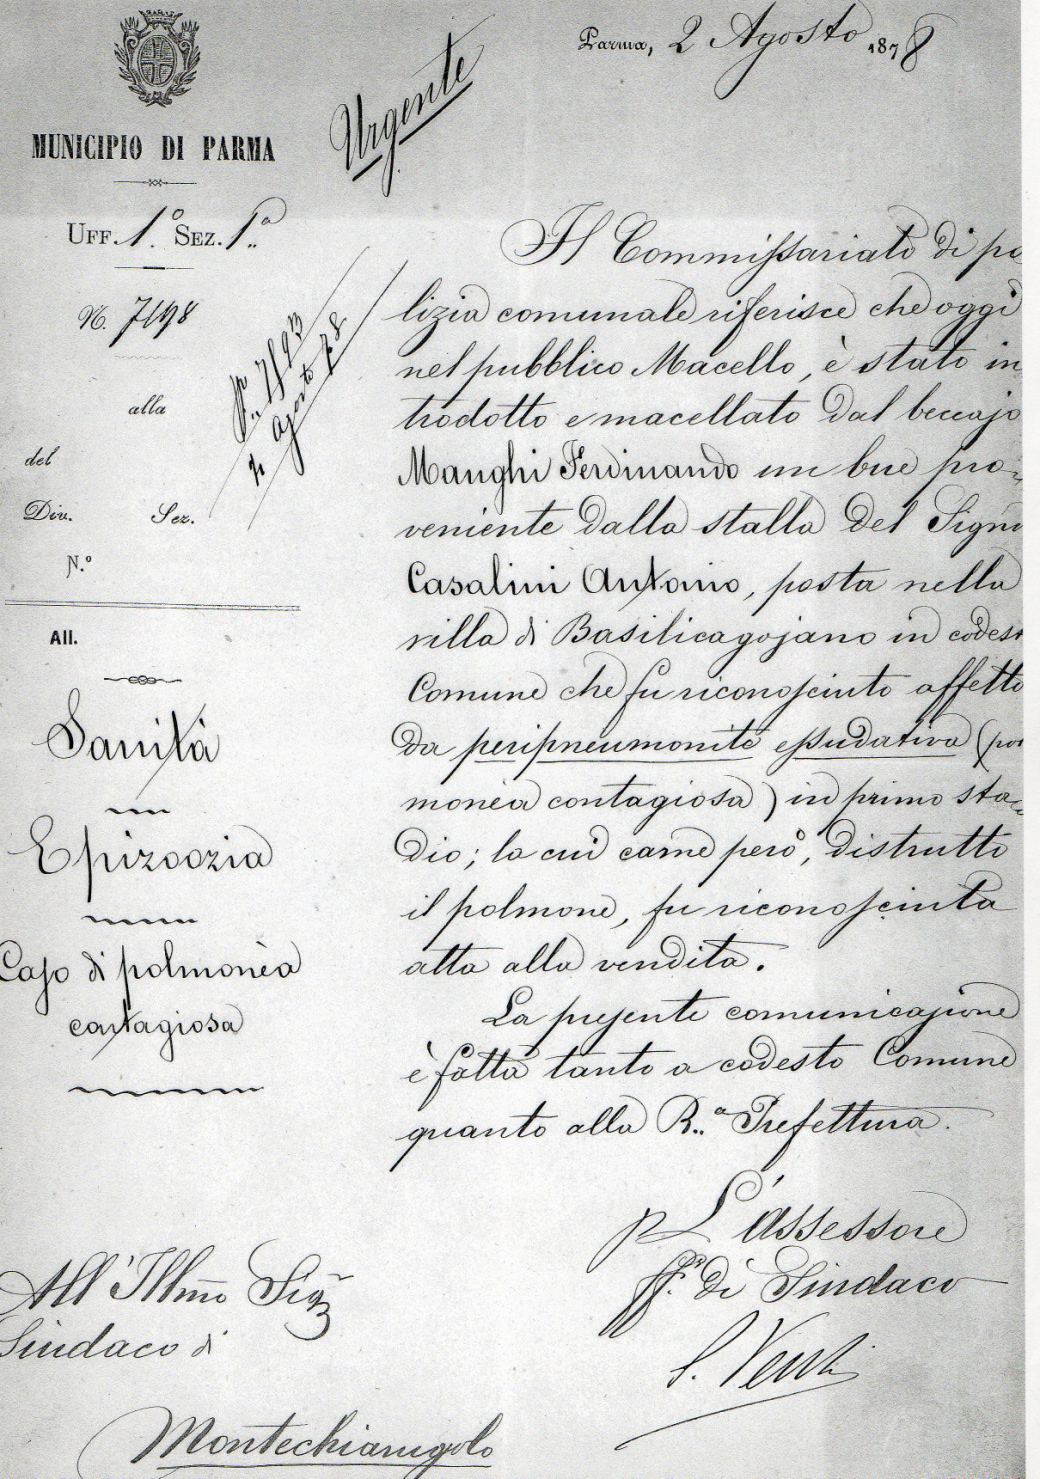 Parma, 2 Agosto 1878
Urgente
MUNICIPIO DI PARMA
UFF. 1.º SEZ. 1.ª
N. 7198
alla
del
Div. Sez.
N.º
All.
Sanità
Epizoozia
Caso di polmonèa
contagiosa
Agosto 78
Il Commissariato di po
lizia comunale riferisce che oggi
nel pubblico Macello, è stato in
trodotto e macellato dal beccajo
Manghi Ferdinando un bue pro-
veniente dalla stalla del Sign
Casalini Antonio, posta nella
villa di Basilicagojano in codest
Comune che fu riconosciuto affetto
da peripneumonite essudativa (po
monèa contagiosa) in primo sta-
dio; la cui carne però, distrutto
il polmone, fu riconosciuta
atta alla vendita.
La presente comunicazione
è fatta tanto a codesto Comune
quanto alla R.ª Prefettura.
p L'Assessore
ff.º di Sindaco
All'Illmo Sigr
Sindaco di
Montechiarugolo